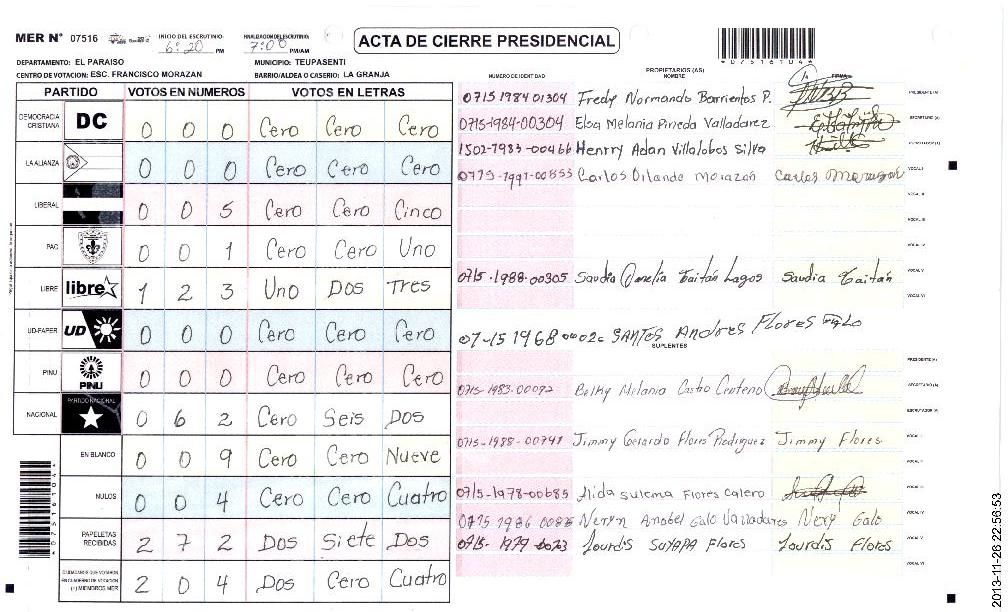 MER N° 07516 INICIO DEL ESCRUTINIO: 6:20 PM FINALIZACION DEL ESCRUTINIO: 7:00 PM/AM
ACTA DE CIERRE PRESIDENCIAL
DEPARTAMENTO: EL PARAISO MUNICIPIO: TEUPASENTI
CENTRO DE VOTACION: ESC. FRANCISCO MORAZAN BARRIO/ALDEA O CASERIO: LA GRANJA
PARTIDO VOTOS EN NUMEROS VOTOS EN LETRAS
DEMOCRACIA CRISTIANA DC 0 0 0 Cero Cero Cero
LA ALIANZA 0 0 0 Cero Cero Cero
LIBERAL 0 0 5 Cero Cero Cinco
PAC 0 0 1 Cero Cero Uno
LIBRE libre 1 2 3 Uno Dos Tres
UD-FAPER UD 0 0 0 Cero Cero Cero
PINU PINU 0 0 0 Cero Cero Cero
NACIONAL PARTIDO NACIONAL 0 6 2 Cero Seis Dos
EN BLANCO 0 0 9 Cero Cero Nueve
NULOS 0 0 4 Cero Cero Cuatro
PAPELETAS RECIBIDAS 2 7 2 Dos Siete Dos
CIUDADANOS QUE VOTARON EN CUADERNO DE VOTACION (+) MIEMBROS MER 2 0 4 Dos Cero Cuatro
PROPIETARIOS (AS)
NUMERO DE IDENTIDAD NOMBRE FIRMA
0715 1984 01304 Fredy Normando Barrientos P. PRESIDENTE (A)
0715-1984-00304 Elsa Melania Pineda Valladarez SECRETARIO (A)
1502-1983-00466 Henrry Adan Villalobos Silva
0715-1991-00853 Carlos Orlando Morazán Carlos Morazán VOCAL I
VOCAL II
VOCAL III
VOCAL IV
0715-1988-00305 Saudia Gaitán Lagos Saudia Gaitán VOCAL V
VOCAL VI
07-15 1968 SANTOS ANDRES FLORES
SUPLENTES
PRESIDENTE (A)
0715-1983-00092 Belky Melania Castro Centeno SECRETARIO (A)
ESCRUTADOR (A)
0715-1988-00741 Jimmy Gerardo Flores Rodriguez Jimmy Flores VOCAL I
VOCAL II
0715-1978-00685 Ilida Sulema Flores Calero VOCAL III
0715 1986 Neryn Anabel Galo Valladares Nery Galo VOCAL IV
0715-1979-00723 Lourdis SUYAPA Flores Lourdis Flores VOCAL V
VOCAL VI
*07516104*
2013-11-26 22:56:53